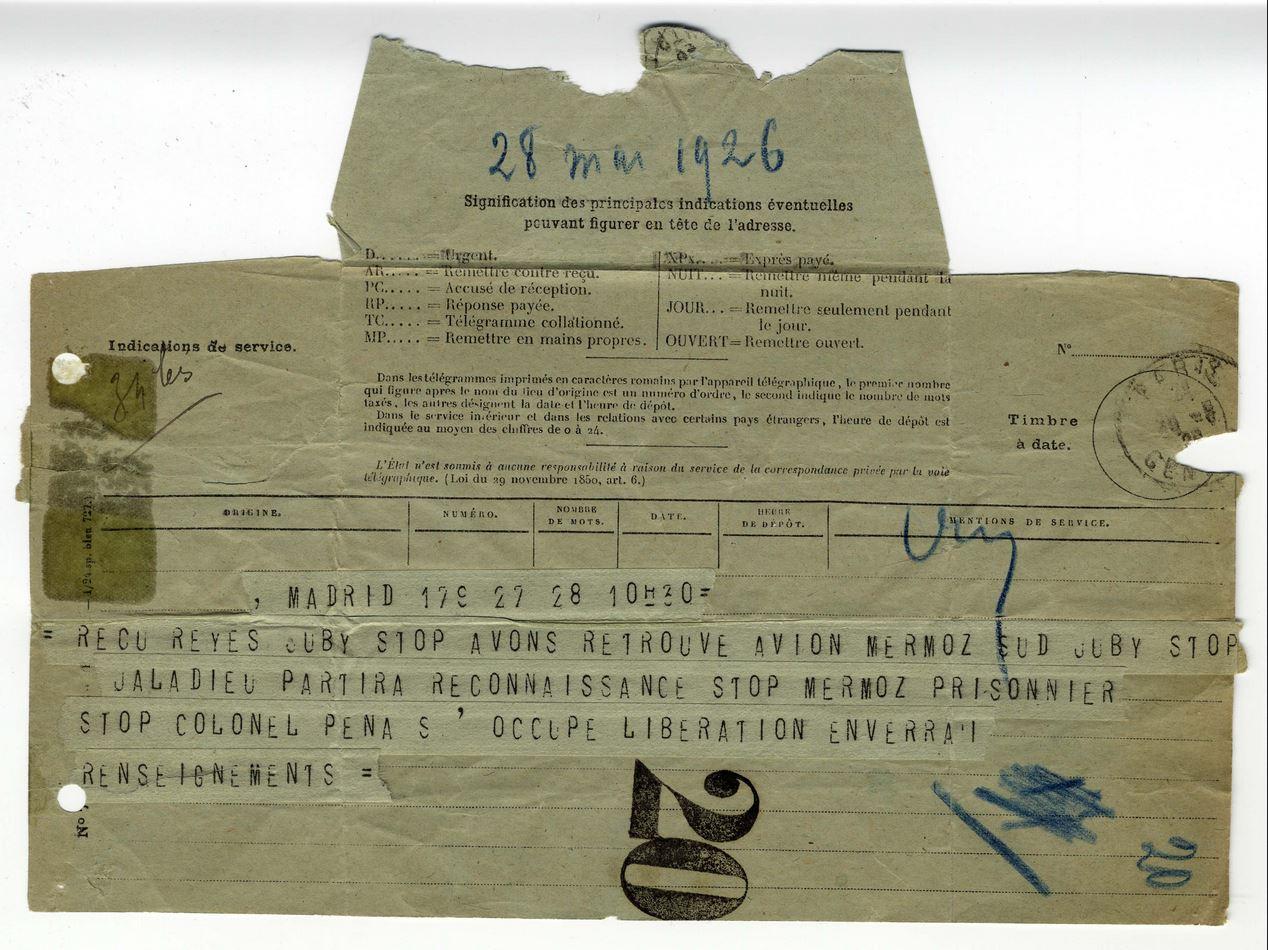 28 mai 1926
Signification des principales indications éventuelles
pouvant figurer en tête de l'adresse.
D...... = Urgent.
AR..... = Remettre contre reçu.
PC..... = Accusé de réception.
RP..... = Réponse payée.
TC..... = Télégramme collationné.
MP..... = Remettre en mains propres.
XPx.... = Exprès payé.
NUIT... = Remettre même pendant la
nuit.
JOUR... = Remettre seulement pendant
le jour.
OUVERT = Remettre ouvert.
Indications de service.
Nº
Dans les télégrammes imprimés en caractères romains par l'appareil télégraphique, le premier nombre
qui figure après le nom du lieu d'origine est un numéro d'ordre, le second indique le nombre de mots
taxés, les autres désignent la date et l'heure de dépôt.
Dans le service intérieur et dans les relations avec certains pays étrangers, l'heure de dépôt est
indiquée au moyen des chiffres de 0 à 24.
Timbre
à date.
PARIS
L'État n'est soumis à aucune responsabilité à raison du service de la correspondance privée par la voie
télégraphique. (Loi du 29 novembre 1850, art. 6.)
ORIGINE.
NUMÉRO.
NOMBRE
DE MOTS.
DATE.
HEURE
DE DÉPÔT.
MENTIONS DE SERVICE.
, MADRID 179 27 28 10H30=
= RECU REYES JUBY STOP AVONS RETROUVE AVION MERMOZ SUD JUBY STOP
JALADIEU PARTIRA RECONNAISSANCE STOP MERMOZ PRISONNIER
STOP COLONEL PENA S ' OCCUPE LIBERATION ENVERRAI
RENSEIGNEMENTS =
Nº
20
20